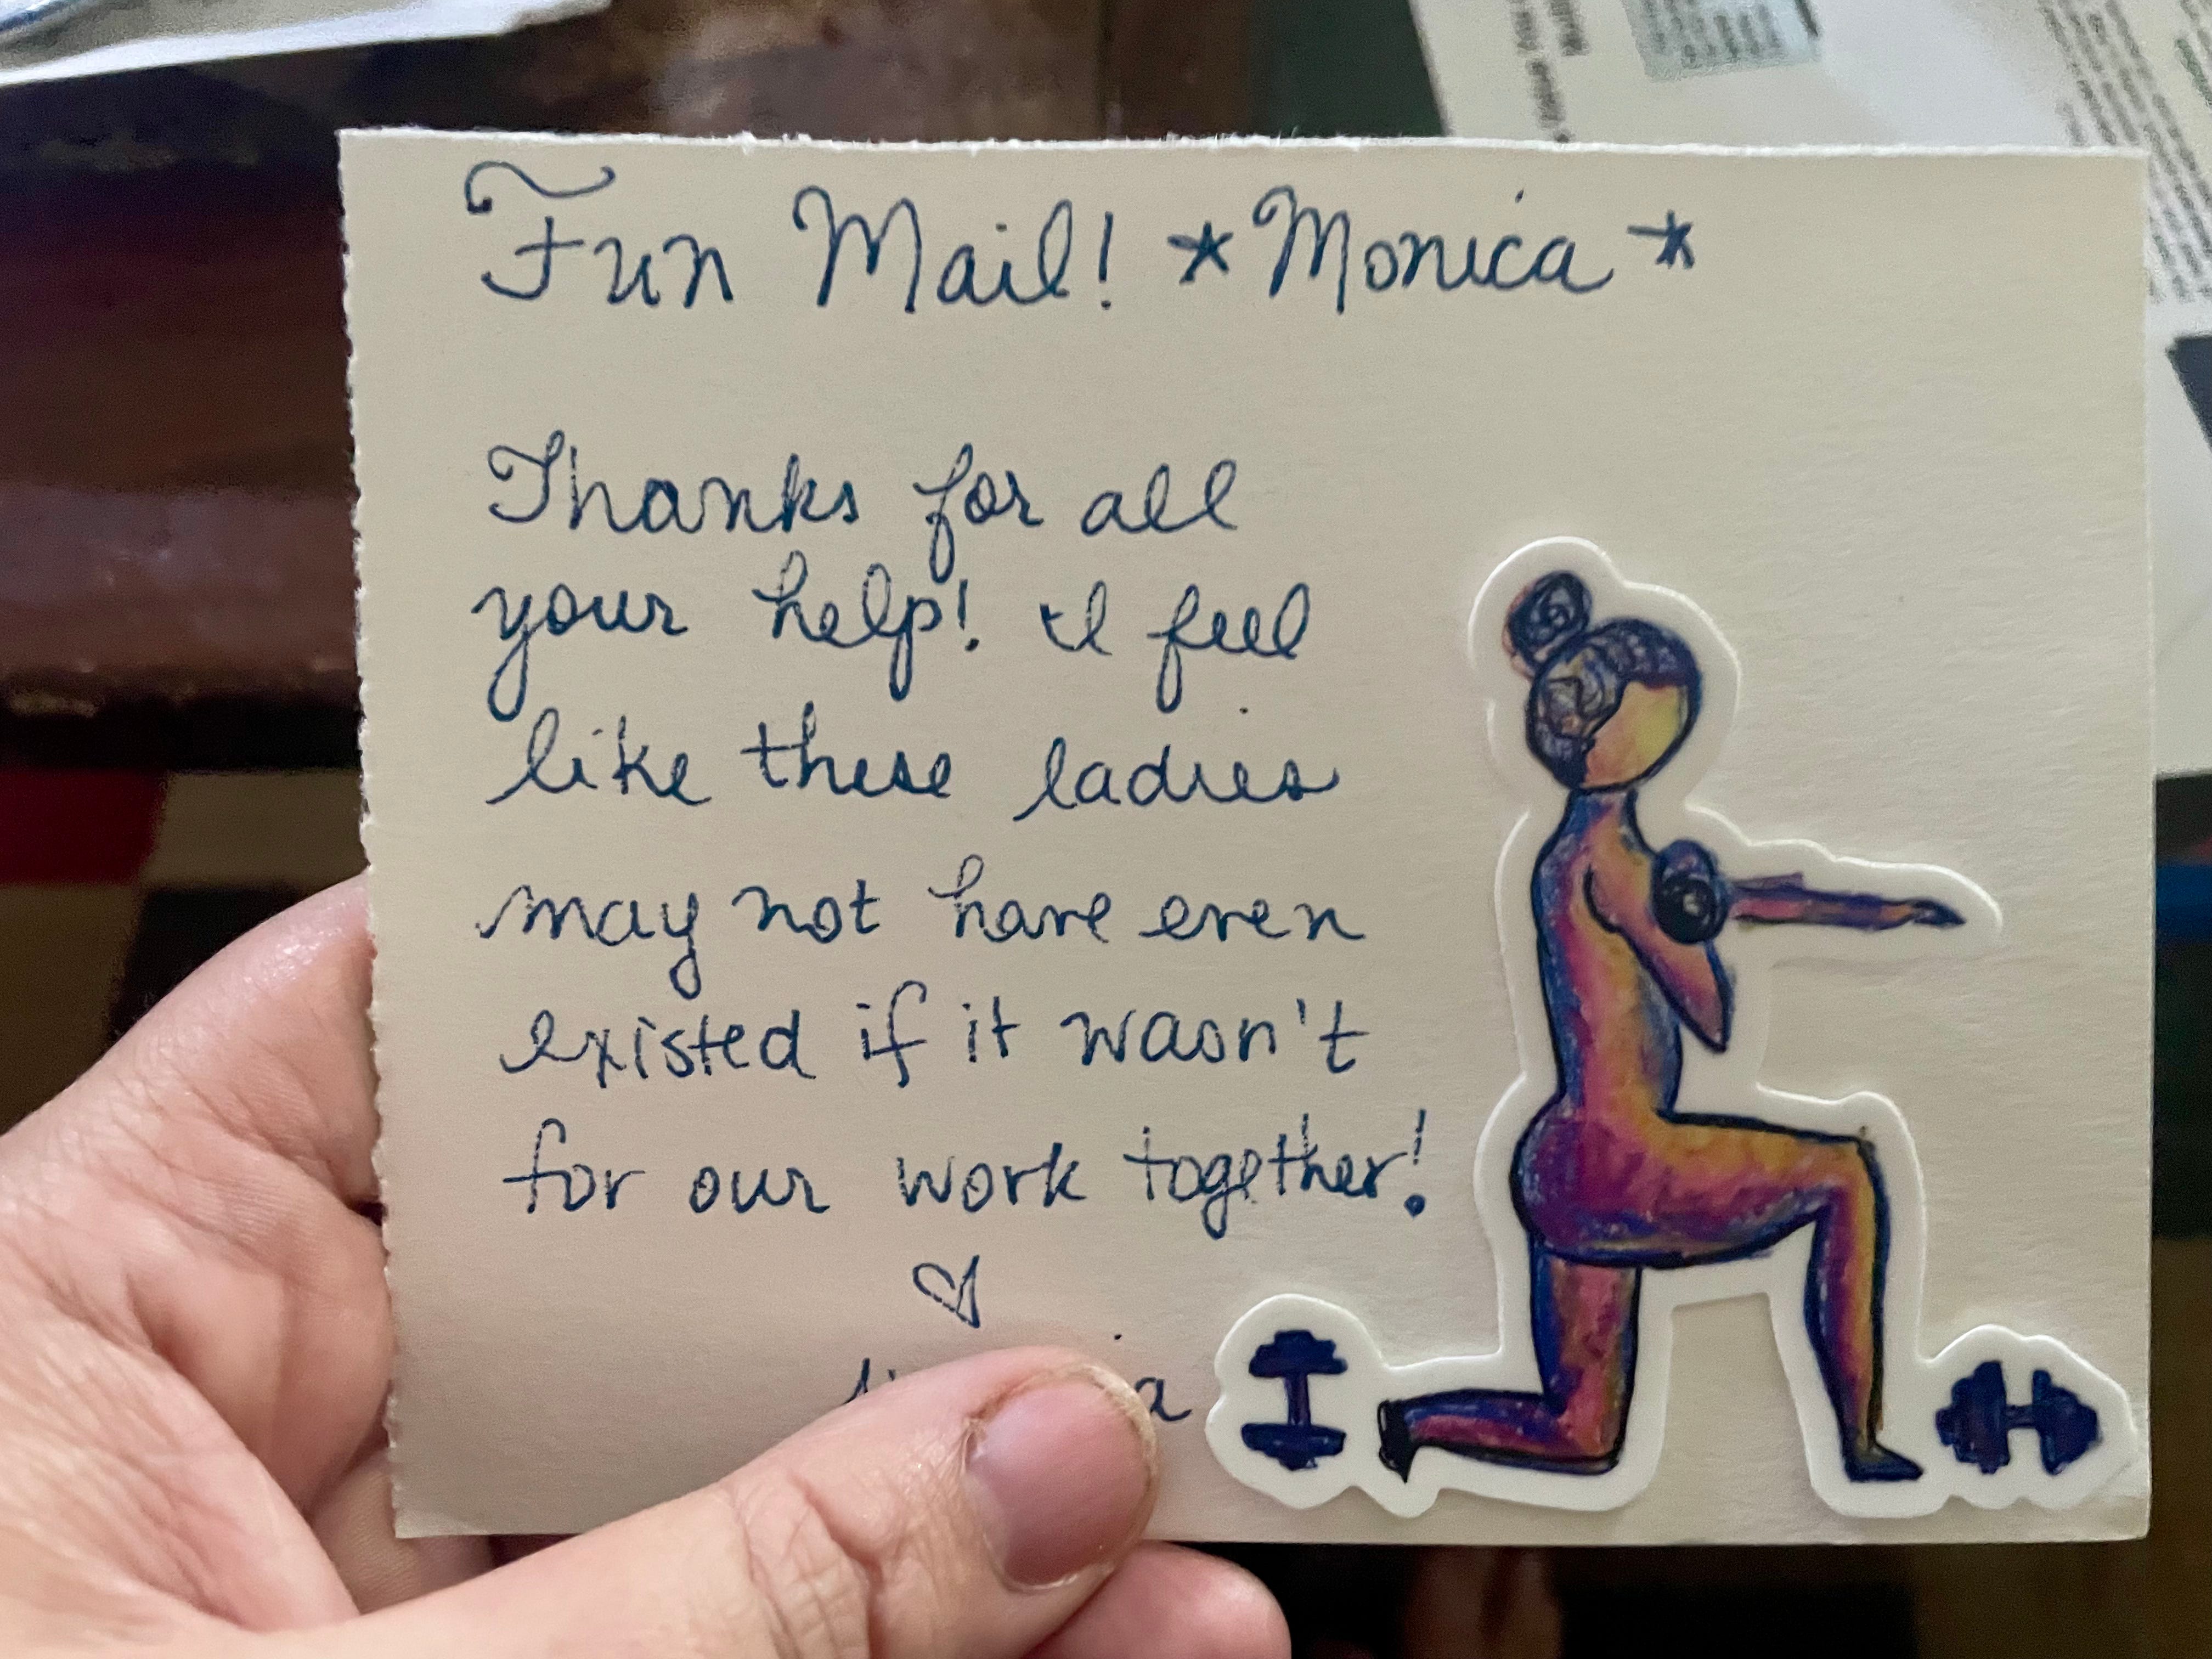 Fun Mail! *Monica*
Thanks for all
your help! I feel
like these ladies
may not have even
existed if it wasn't
for our work together!
♡